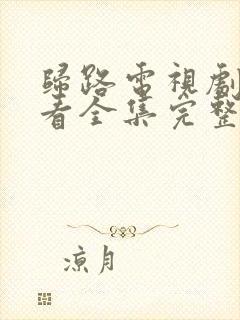 歸路電視劇
看全集完整
涼月